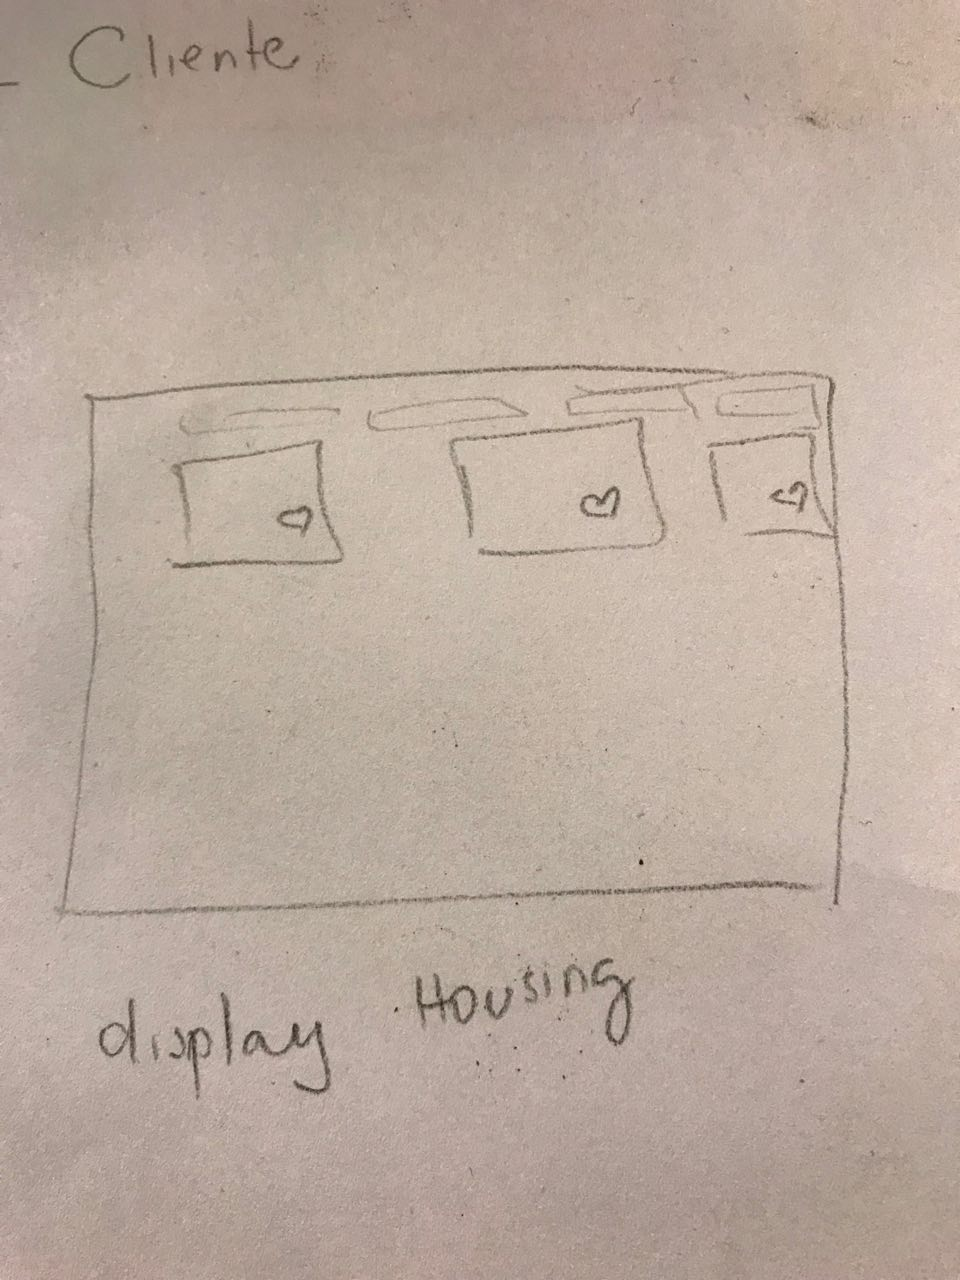 - Cliente
display Housing